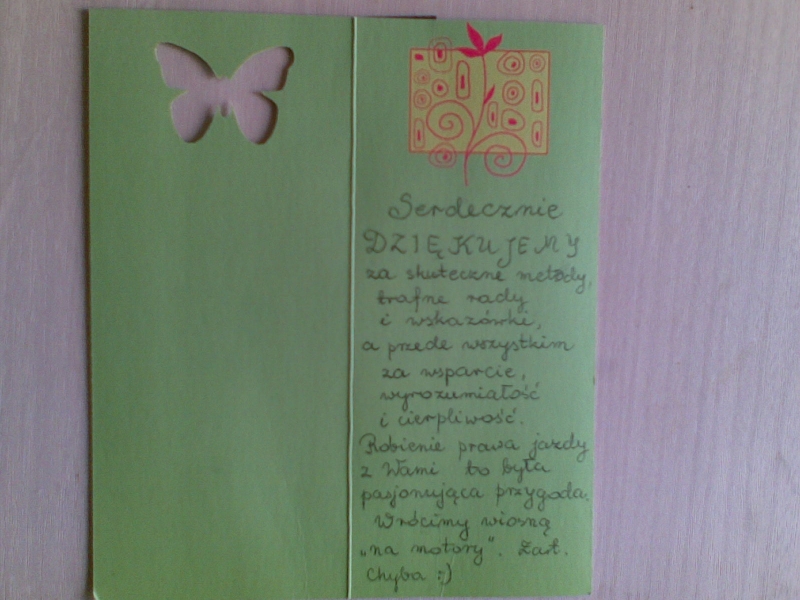 Serdecznie
DZIĘKUJEMY
za skuteczne metody,
trafne rady
i wskazówki,
a przede wszystkim
za wsparcie,
wyrozumiałość
i cierpliwość.
Robienie prawa jazdy
z Wami to była
pasjonująca przygoda.
Wrócimy wiosną
„na motory". Żart.
Chyba :)